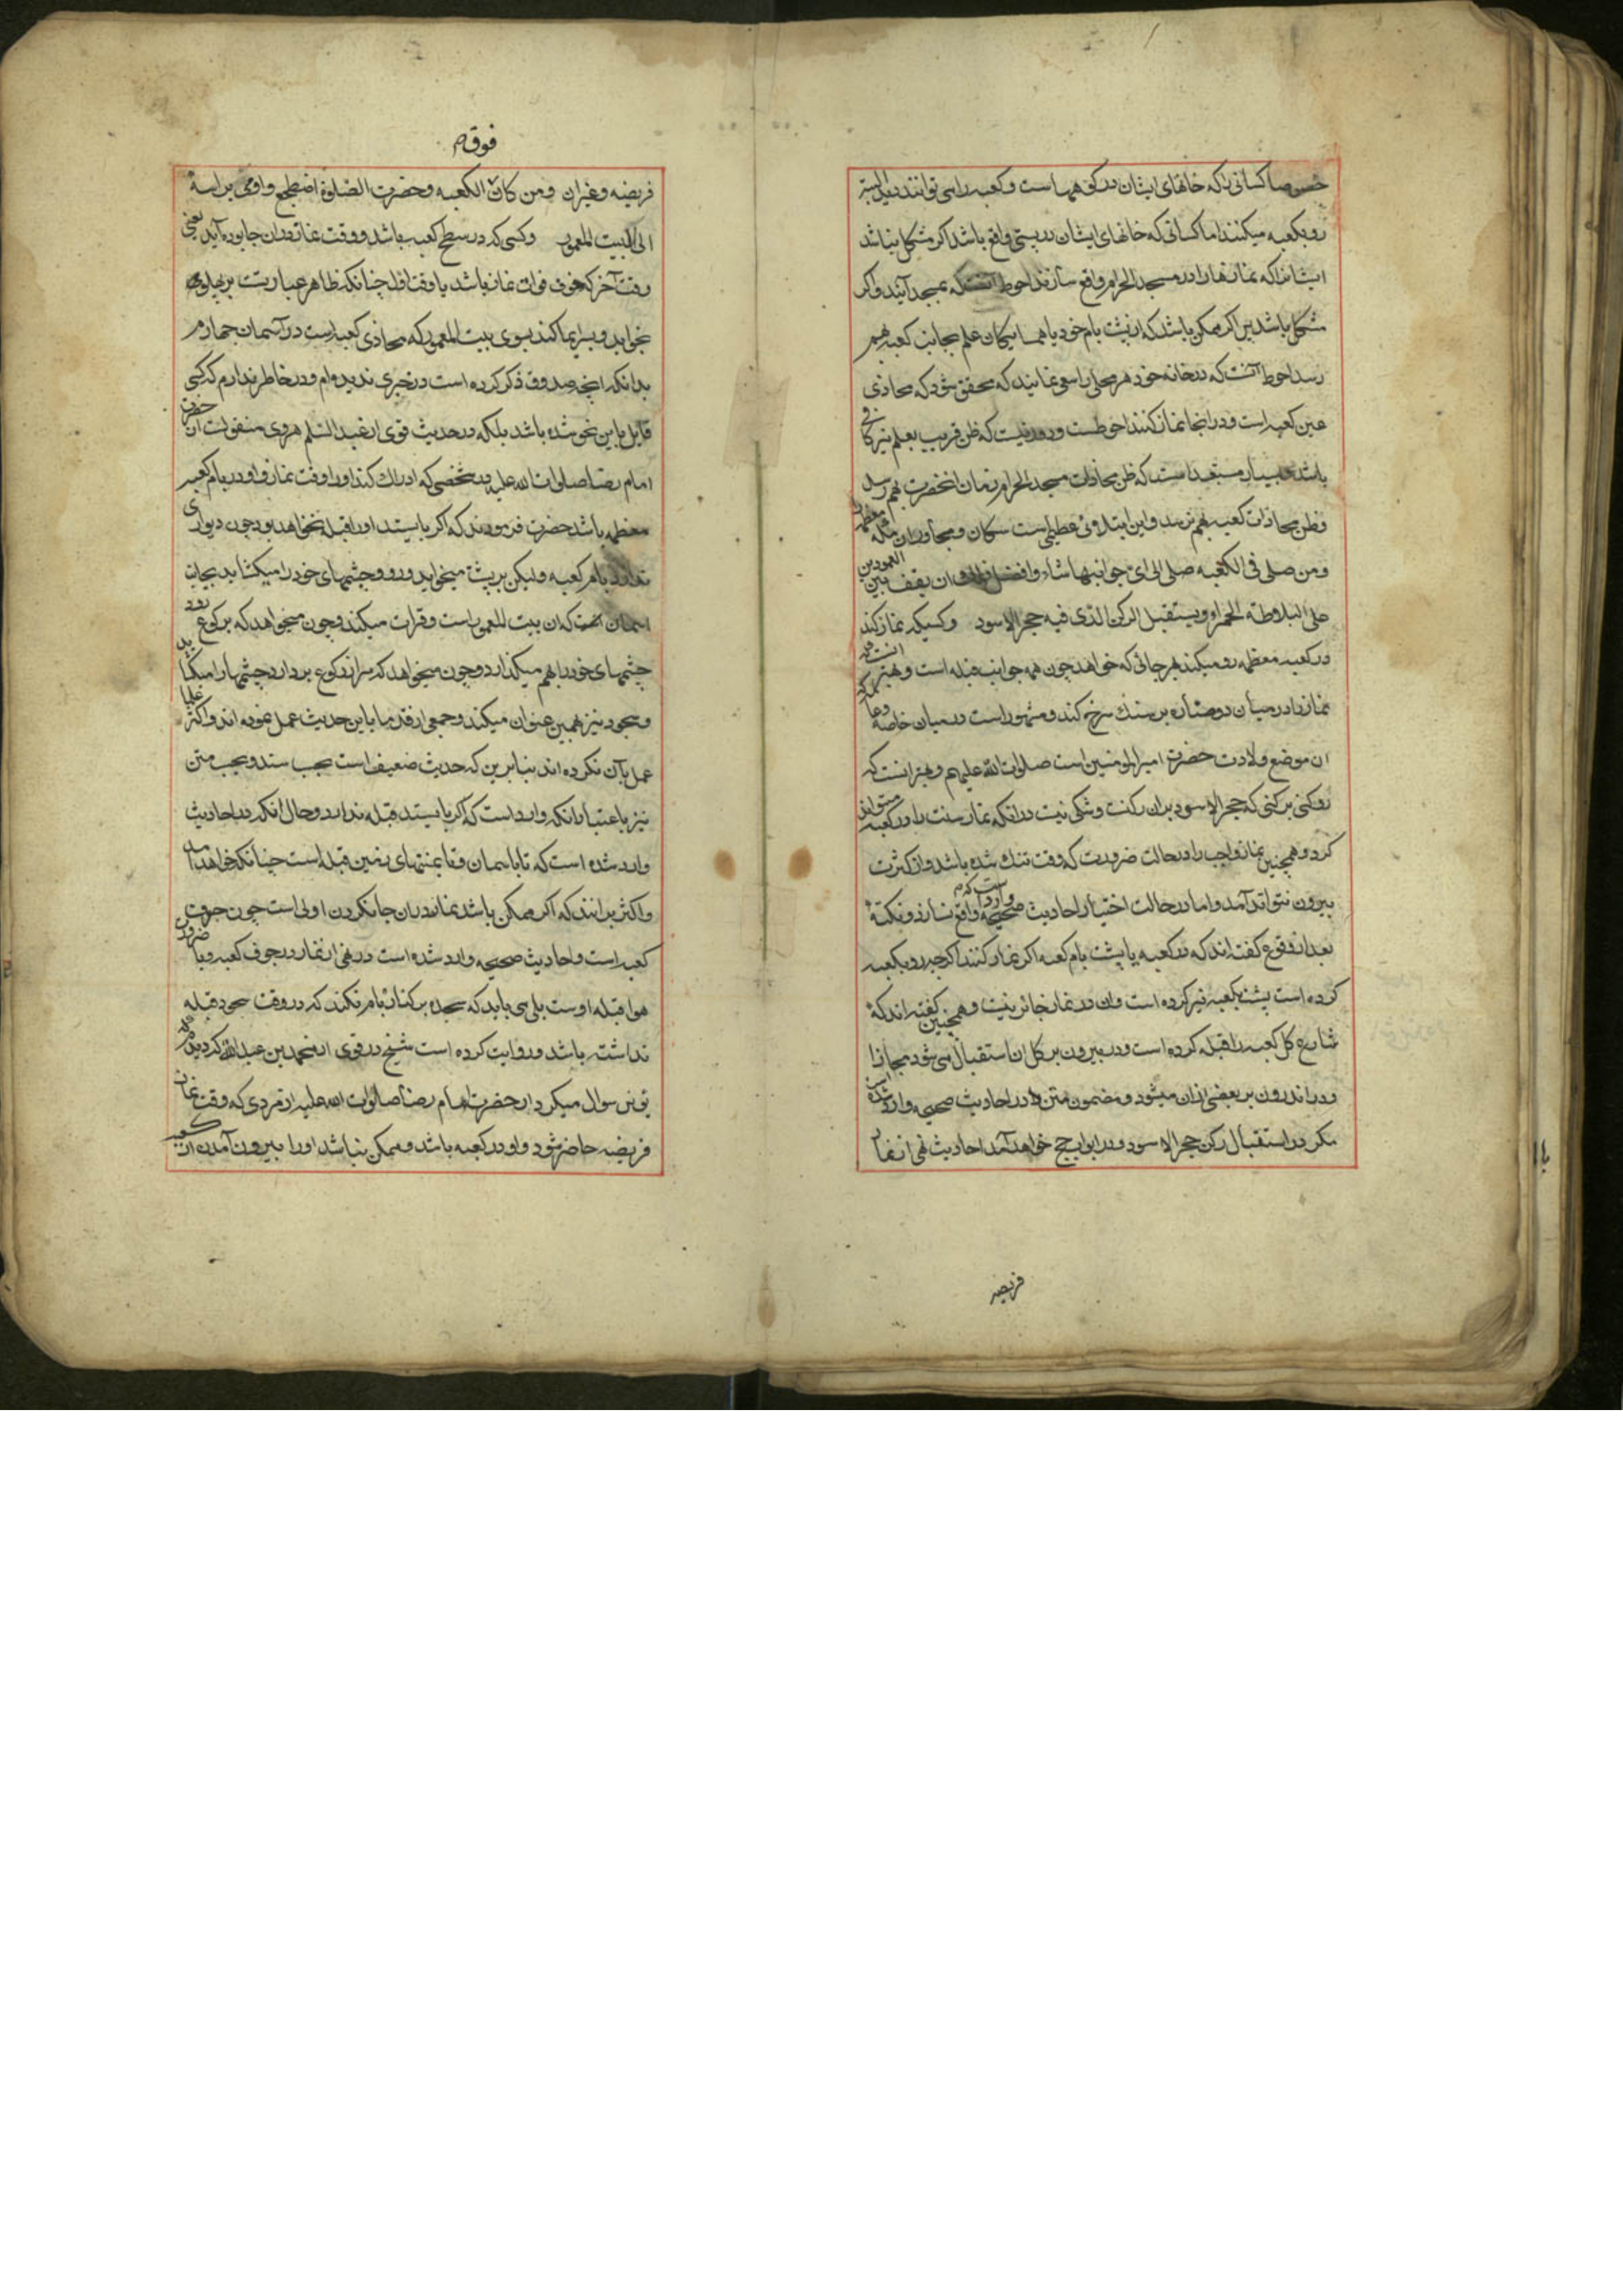 خصوصا کسانی را که خانهای ایشان در کوهها است و کعبه را می توانند دید البته
رو بکعبه میکنند اما کسانی که خانهای ایشان در پستی واقع باشد اگر مشکل نباشد
ایشانرا که نمازها را در مسجد الحرام واقع سازند احوط آنست که بمسجد آیند و اگر
مشکل باشد پس اگر ممکن باشد که از پشت بام خود یا همسایگان علم بجانب کعبه بهم
رسد احوط آنست که در خانه خود هر محلی را سعی نمایند که محقق شود که محاذی
عین کعبه است و در انجا نماز کنند احوطست و دور نیست که ظن قریب بعلم نیز کافی
باشد بسیار مستبعد است که ظن محاذات مسجد الحرام زمان انحضرت بهم رسد
و ظن محاذات کعبه بهم نرسد و این ابتلائی عظیم است سکان و مجاوران مکه معظمه را
ومن صلی فی الکعبه صلی الی ای جوانبها شاء وافضل ذلک ان یقف بین العمودین
علی البلاطة الحمراء ویستقبل الرکن الذی فیه حجر الاسود و کسیکه نماز کند
در کعبه معظمه رو میکند بهر جائی که خواهد چون همه جوانب قبله است و بهتر انست که
نماز را در میان دو ستاره بر سنک سرخ کند و مشهور است در میان خاصه و عامه که
ان موضع ولادت حضرت امیر المؤمنین است صلوات الله علیهم و بهتر انست که
رو کنی برکنی که حجر الاسود بران رکنست و شکی نیست در انکه نماز سنت را در کعبه میتواند
کرد و همچنین نماز واجب را در حالت ضرورت که وقت تنک شده باشد و از کثرت
بیرون نتواند آمد و اما در حالت اختیار احادیث صحیحه وارد است که در م واقع نسازند و نکته
بعد از وقوع گفته اند که در کعبه یا پشت بام کعبه اگر نماز کنند اگر چه رو بکعبه
کرده است پشت بکعبه نیز کرده است و ان در نماز جائز نیست و همچنین گفته اند که
شارع کل کعبه را قبله کرده است و در بیرون بر کل ان استقبال می شود مجازا
و در اندرون بر بعضی ازان میشود و مضمون متن در احادیث صحیحه وارد شده است
مگر در استقبال رکن حجر الاسود و در ابواب حج خواهد آمد احادیث نهی از نماز
فریضه
فوق م
فریضه و غیر ان ومن کان الکعبه وحضرت الصلوة اضطجع واومی براسه
الی البیت المعمور و کسی که در سطح کعبه باشد و وقت نماز در ان جا در آید یعنی
وقت آخر که خوف فوات نماز باشد یا وقت اول چنانکه ظاهر عبارتست بر پهلو
بخوابد و بسر ایما کند بسوی بیت المعمور که محاذی کعبه است در آسمان چهارم
بدانکه انچه صدوق ذکر کرده است در خبری ندیده ام و در خاطر ندارم که کسی
قایل باین نحو شده باشد بلکه در حدیث قوی از عبد السلم هروی منقولست از حضرت
امام رضا صلوات الله علیه در شخصی که ادراک کند او را وقت نماز و او در بام کعبه
معظمه باشد حضرت فرمودند که اگر بایستد او را قبله نخواهد بود چون دیواری
ندارد بام کعبه ولیکن بر پشت میخوابد و رو و چشمهای خود را میکشاید بجانب
اسمان که ان بیت المعمور است و قرات میکند و چون میخواهد که برکوع رود
چشمهای خود را بهم میکذارد و چون میخواهد که سر از رکوع بردارد چشمها را میکشاید
و سجود نیز بهمین عنوان میکند و جمعی از قدما باین حدیث عمل نموده اند و اکثر علما
عمل بآن نکرده اند بنا برین که حدیث ضعیف است بحسب سند و بحسب متن
نیز باعتبار انکه وارد است که اگر بایستد قبله ندارد و حال انکه در احادیث
وارد شده است که تا باسمان و تا بمنتهای زمین قبله است چنانکه خواهد آمد
و اکثر برانند که اگر ممکن باشد نماز در ان جا نکردن اولی است چون حرمت
کعبه است و احادیث صحیحه وارد شده است در نهی از نماز در جوف کعبه و با ضرورت
هوا قبله اوست بلی می باید که سجده بر کنار بام نکند که در وقت سجود قبله
نداشته باشد و روایت کرده است شیخ در قوی از محمد بن عبد الله که دیدم که
یونس سوال میکرد از حضرت امام رضا صلوات الله علیه از مردی که وقت نماز
فریضه حاضر شود و او در کعبه باشد و ممکن نباشد او را بیرون آمدن از کعبه